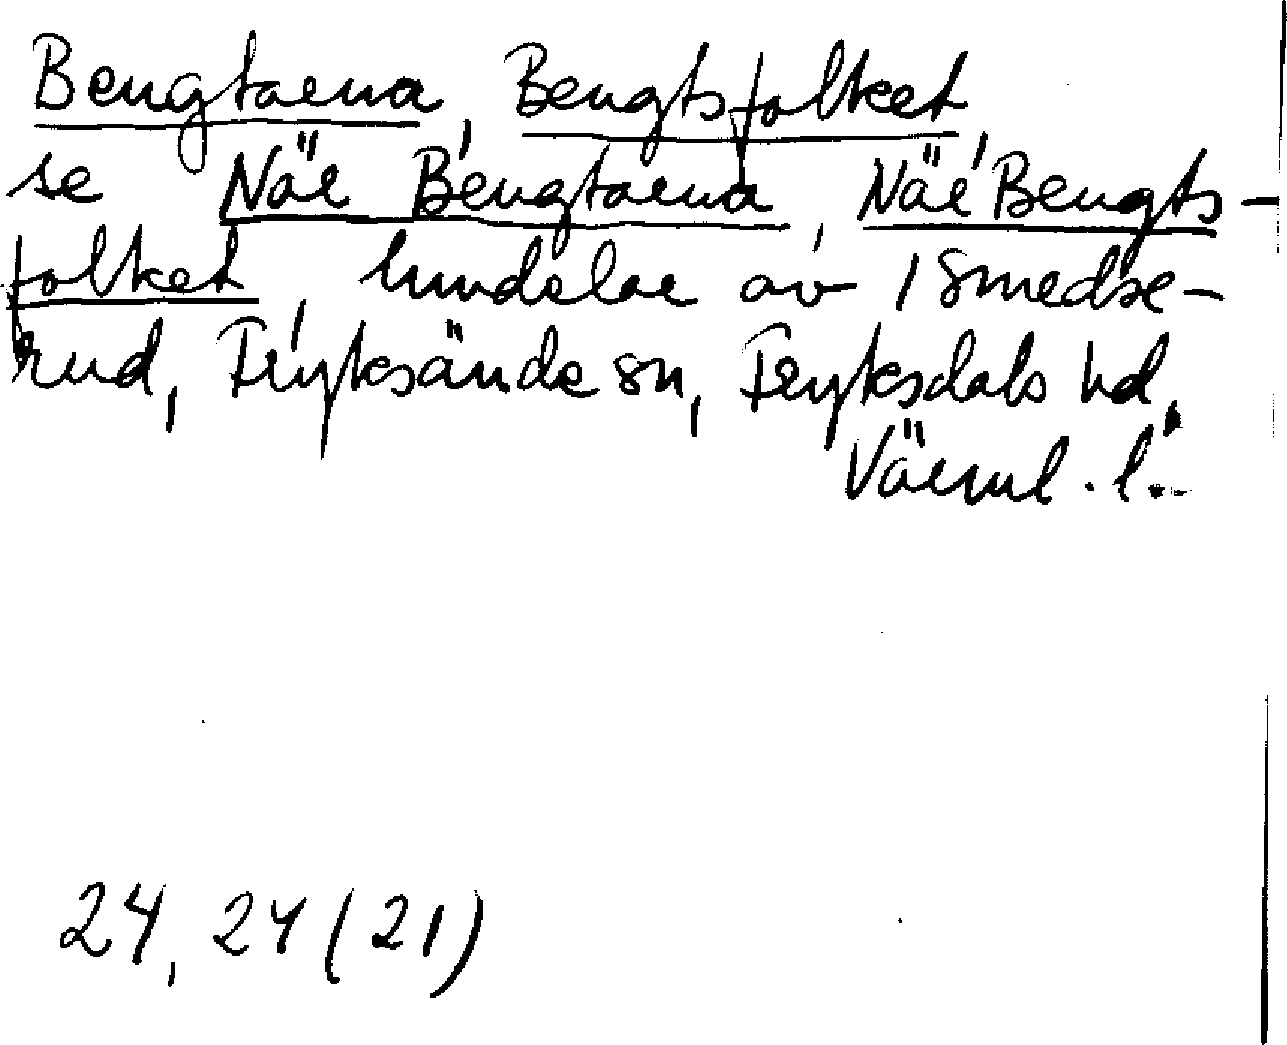 Bengtarna, Bengtsfolket,
se När Bengtarna, När Bengts-
folket, hmdelar av 1 Smedse-
rud, Fryksände sn, Fryksdals hd,
Värml. l.
24, 24 (21)